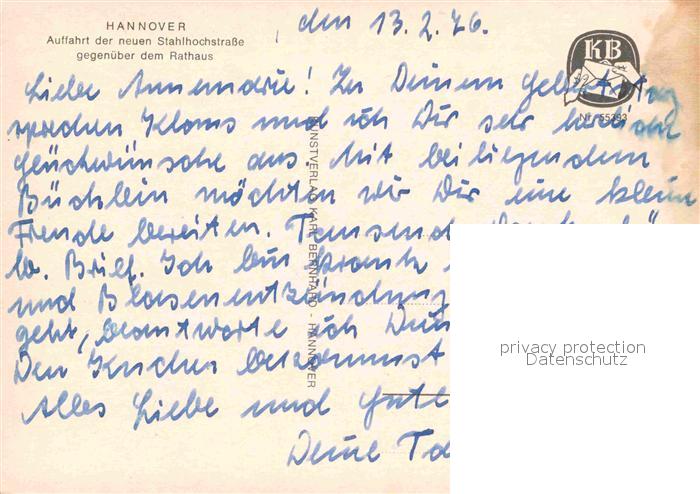 HANNOVER
Auffahrt der neuen Stahlhochstraße
gegenüber dem Rathaus
, den 13.2.76.
KB
Nr. 55393
Liebe Annemarie! Zu Deinem Geburtstag
sprechen Klaus und ich Dir sehr herzliche
Glückwünsche aus. Mit beiliegendem
Büchlein möchten wir Dir eine kleine
Freude bereiten. Tausend Dank für
lb. Brief. Ich bin krank
und Blasenentzündung
geht, beantworte ich Dein
Den Kuchen bekommst
Alles Liebe und Gute
Deine
KUNSTVERLAG KARL BERNHARD - HANNOVER
privacy protection
Datenschutz